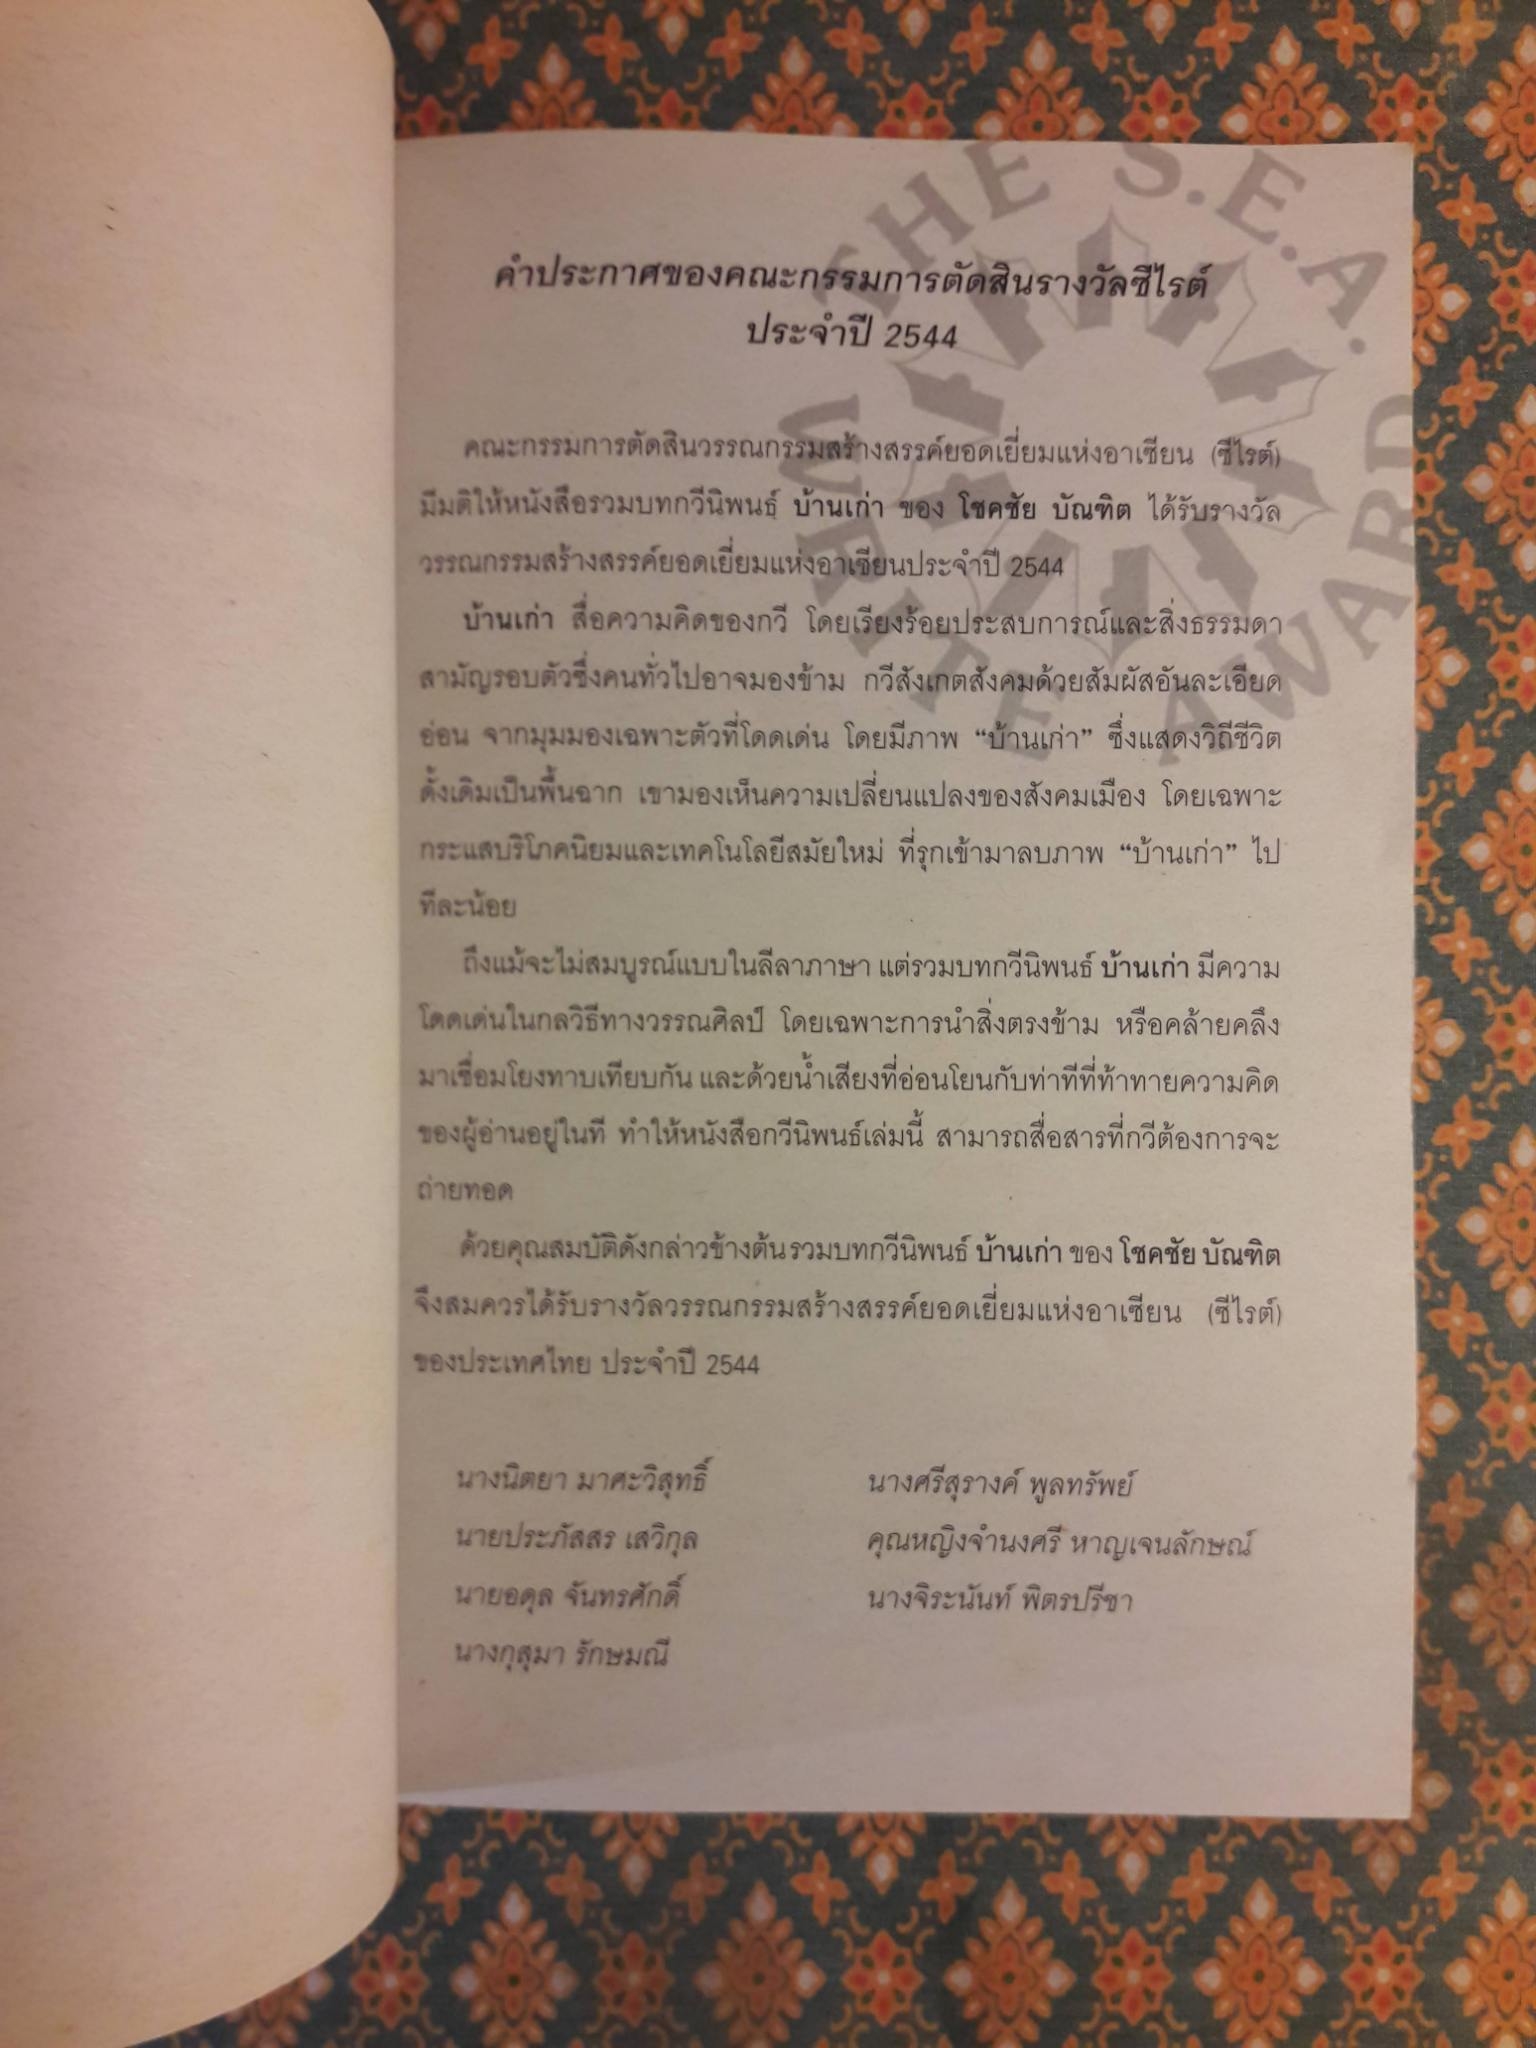 THE S.E.A. WRITE AWARD
คำประกาศของคณะกรรมการตัดสินรางวัลซีไรต์
ประจำปี 2544
คณะกรรมการตัดสินวรรณกรรมสร้างสรรค์ยอดเยี่ยมแห่งอาเซียน (ซีไรต์)
มีมติให้หนังสือรวมบทกวีนิพนธ์ บ้านเก่า ของ โชคชัย บัณฑิต ได้รับรางวัล
วรรณกรรมสร้างสรรค์ยอดเยี่ยมแห่งอาเซียนประจำปี 2544
บ้านเก่า สื่อความคิดของกวี โดยเรียงร้อยประสบการณ์และสิ่งธรรมดา
สามัญรอบตัวซึ่งคนทั่วไปอาจมองข้าม กวีสังเกตสังคมด้วยสัมผัสอันละเอียด
อ่อน จากมุมมองเฉพาะตัวที่โดดเด่น โดยมีภาพ “บ้านเก่า” ซึ่งแสดงวิถีชีวิต
ดั้งเดิมเป็นพื้นฉาก เขามองเห็นความเปลี่ยนแปลงของสังคมเมือง โดยเฉพาะ
กระแสบริโภคนิยมและเทคโนโลยีสมัยใหม่ ที่รุกเข้ามาลบภาพ “บ้านเก่า” ไป
ทีละน้อย
ถึงแม้จะไม่สมบูรณ์แบบในลีลาภาษา แต่รวมบทกวีนิพนธ์ บ้านเก่า มีความ
โดดเด่นในกลวิธีทางวรรณศิลป์ โดยเฉพาะการนำสิ่งตรงข้าม หรือคล้ายคลึง
มาเชื่อมโยงทาบเทียบกัน และด้วยน้ำเสียงที่อ่อนโยนกับท่าทีที่ท้าทายความคิด
ของผู้อ่านอยู่ในที ทำให้หนังสือกวีนิพนธ์เล่มนี้ สามารถสื่อสารที่กวีต้องการจะ
ถ่ายทอด
ด้วยคุณสมบัติดังกล่าวข้างต้น รวมบทกวีนิพนธ์ บ้านเก่า ของ โชคชัย บัณฑิต
จึงสมควรได้รับรางวัลวรรณกรรมสร้างสรรค์ยอดเยี่ยมแห่งอาเซียน (ซีไรต์)
ของประเทศไทย ประจำปี 2544
นางนิตยา มาศะวิสุทธิ์ นางศรีสุรางค์ พูลทรัพย์
นายประภัสสร เสวิกุล คุณหญิงจำนงศรี หาญเจนลักษณ์
นายอดุล จันทรศักดิ์ นางจิระนันท์ พิตรปรีชา
นางกุสุมา รักษมณี